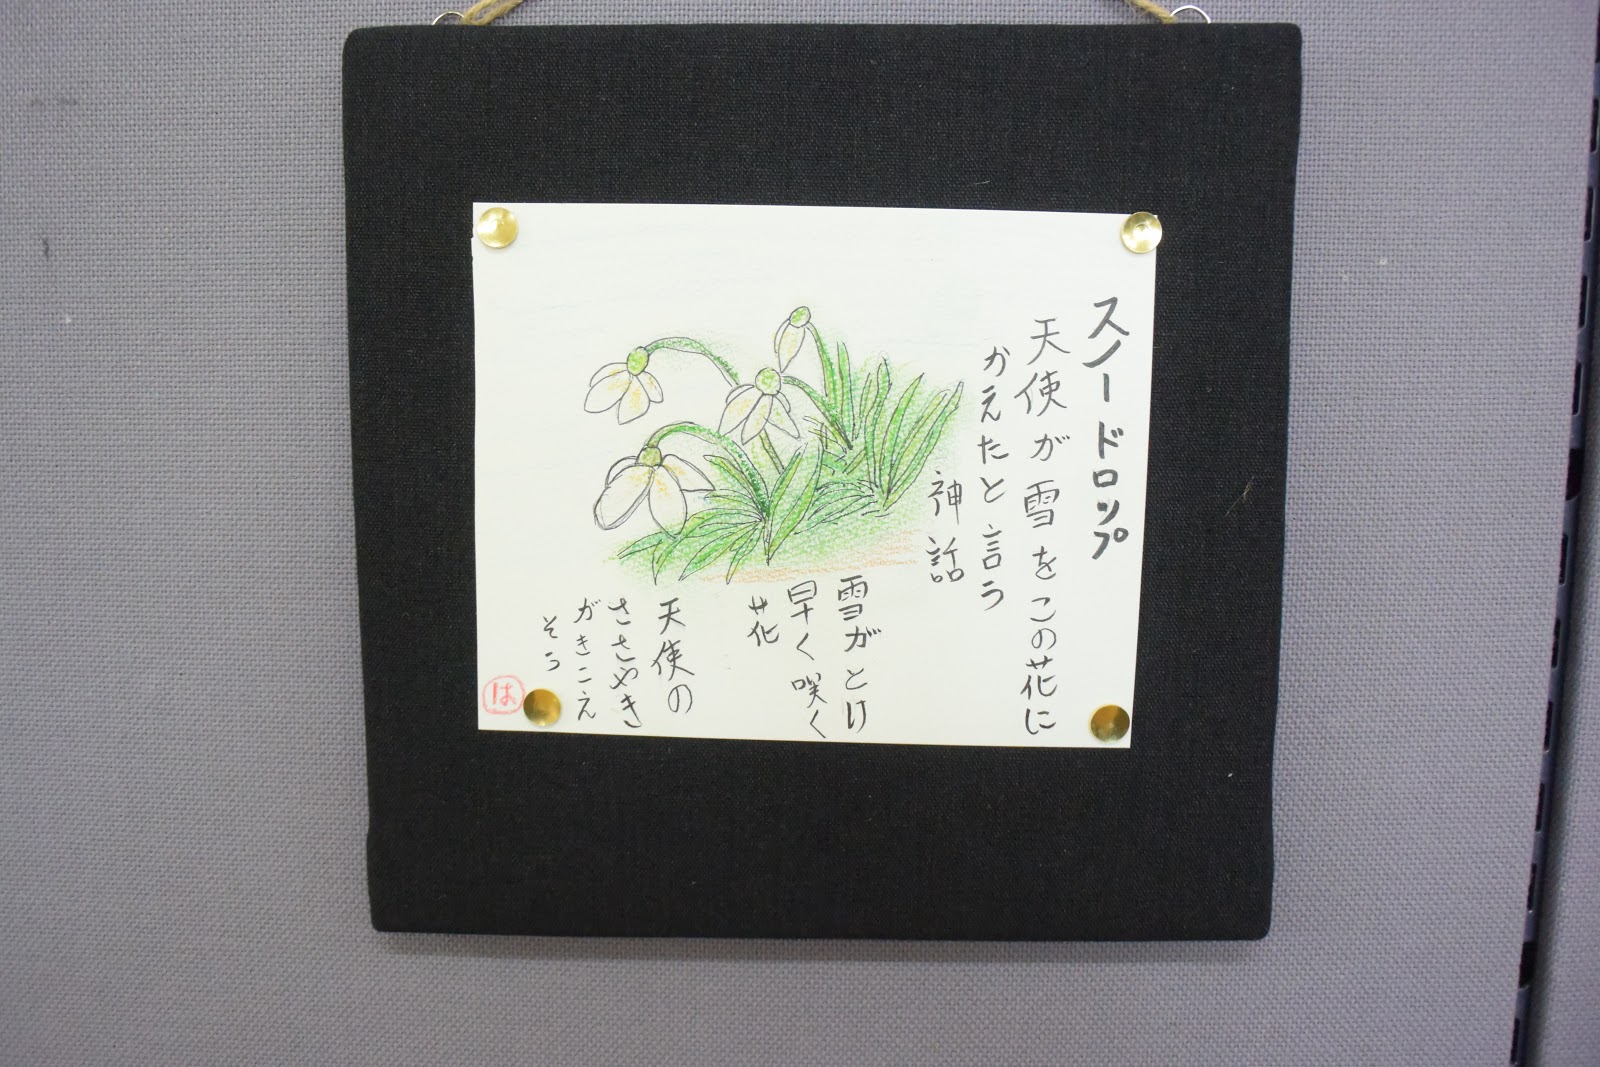 スノードロップ
天使が雪をこの花に
かえたと言う
神話
雪がとけ
早く咲く
花
天使の
ささやき
がきこえ
そう
は